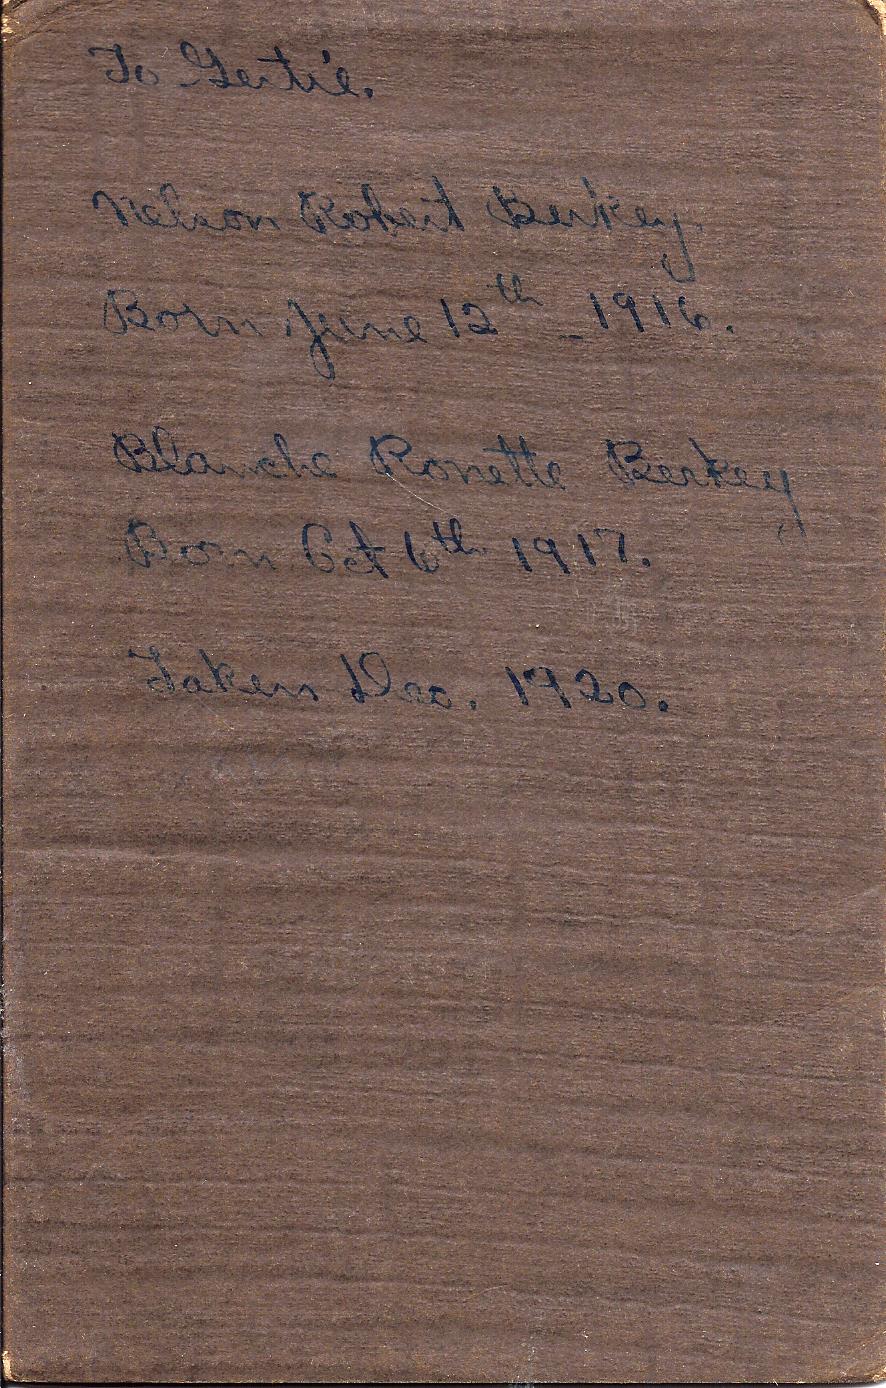 To Gertie.
Nelson Robert Berkey
Born June 12th - 1916.
Blanche Ronette Berkey
Born Oct 6th 1917.
Taken Dec. 1920.